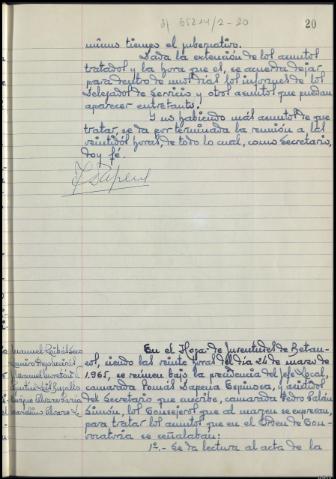 20
mimos tiempos el gubernativo.
Dada la extensión de los asuntos
tratados y la hora que es, se acuerda dejar,
para dentro de unos días los informes de los
Delegados de Servicio y otros asuntos que puedan
aparecer entretanto.
Y no habiendo más asuntos de que
tratar, se da por terminada la reunión a las
veintidós horas, de todo lo cual, como Secretario,
doy fé.
En el Hogar de Juventudes de Betan-
zos, siendo las veinte horas del día 24 de marzo de
1965, se reunen bajo la presidencia del Jefe Local,
camarada Tomás Dapena Espinosa, y asistidos
del Secretario que suscribe, camarada Pedro Galán
Simón, los Consejeros que al margen se expresan,
para tratar los asuntos que en el Orden de Con-
vocatoria se señalaban:
1º.- Se da lectura al acta de la